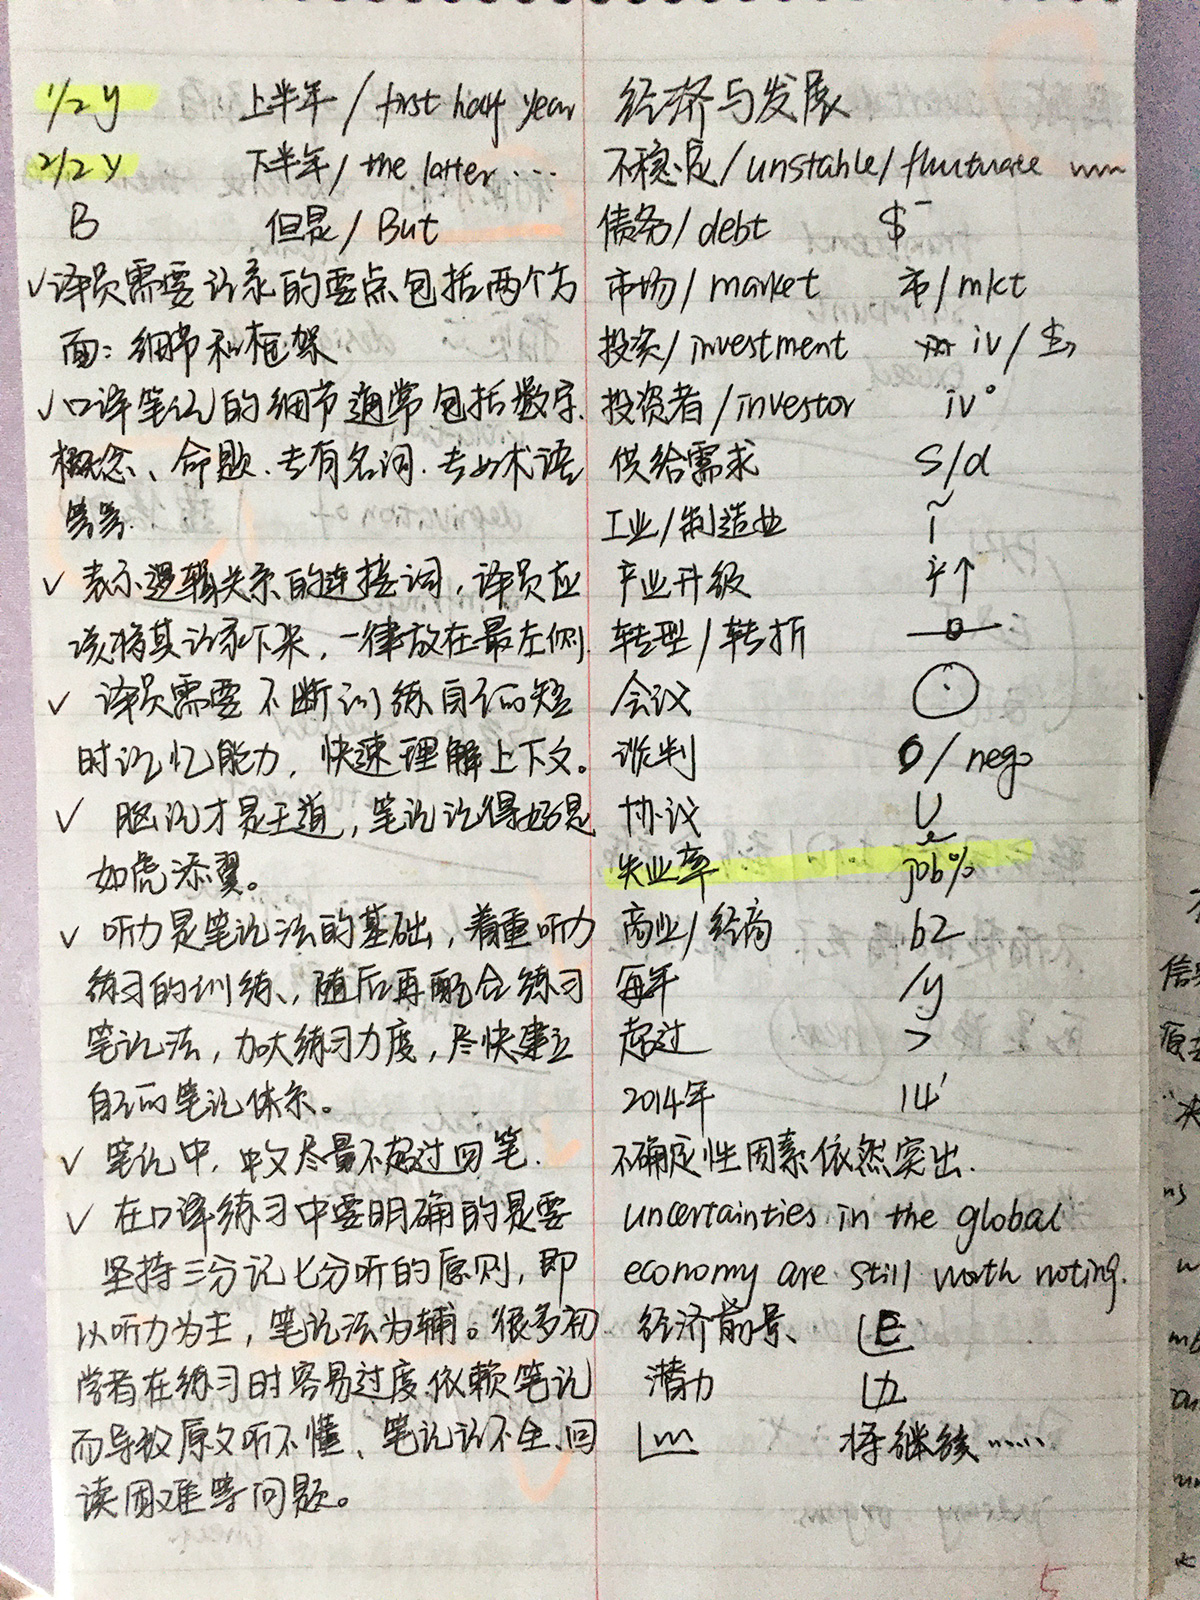 1/2 y 上半年 / first half year
2/2 y 下半年 / the latter ....
B 但是 / But
✓ 译员需要记录的要点包括两个方
面：细节和框架
✓ 口译笔记的细节通常包括数字、
概念、命题、专有名词、专业术语
等等.
✓ 表示逻辑关系的连接词，译员应
该将其记录下来，一律放在最左侧.
✓ 译员需要不断训练自己的短
时记忆能力，快速理解上下文。
✓ 脑记才是王道，笔记记得好是
如虎添翼。
✓ 听力是笔记法的基础，着重听力
练习的训练、随后再配合练习
笔记法，加大练习力度，尽快建立
自己的笔记体系。
✓ 笔记中，中文尽量不超过四笔.
✓ 在口译练习中要明确的是要
坚持三分记七分听的原则，即
以听力为主，笔记法为辅。很多初
学者在练习时容易过度依赖笔记
而导致原文听不懂、笔记记不全、回
读困难等问题。
经济与发展
不稳定 / unstable / fluctuate
债务 / debt $⁻
市场 / market 市 / mkt
投资 / investment iv /
投资者 / investor iv°
供给需求 s/d
工业 / 制造业
产业升级 产↑
转型 / 转折
会议
谈判 / nego
协议 U
失业率 job%
商业 / 经商 bz
每年 /y
超过 >
2014年 14'
不确定性因素依然突出.
uncertainties in the global
economy are still worth noting.
经济前景、 E
潜力 力
将继续 ......
5